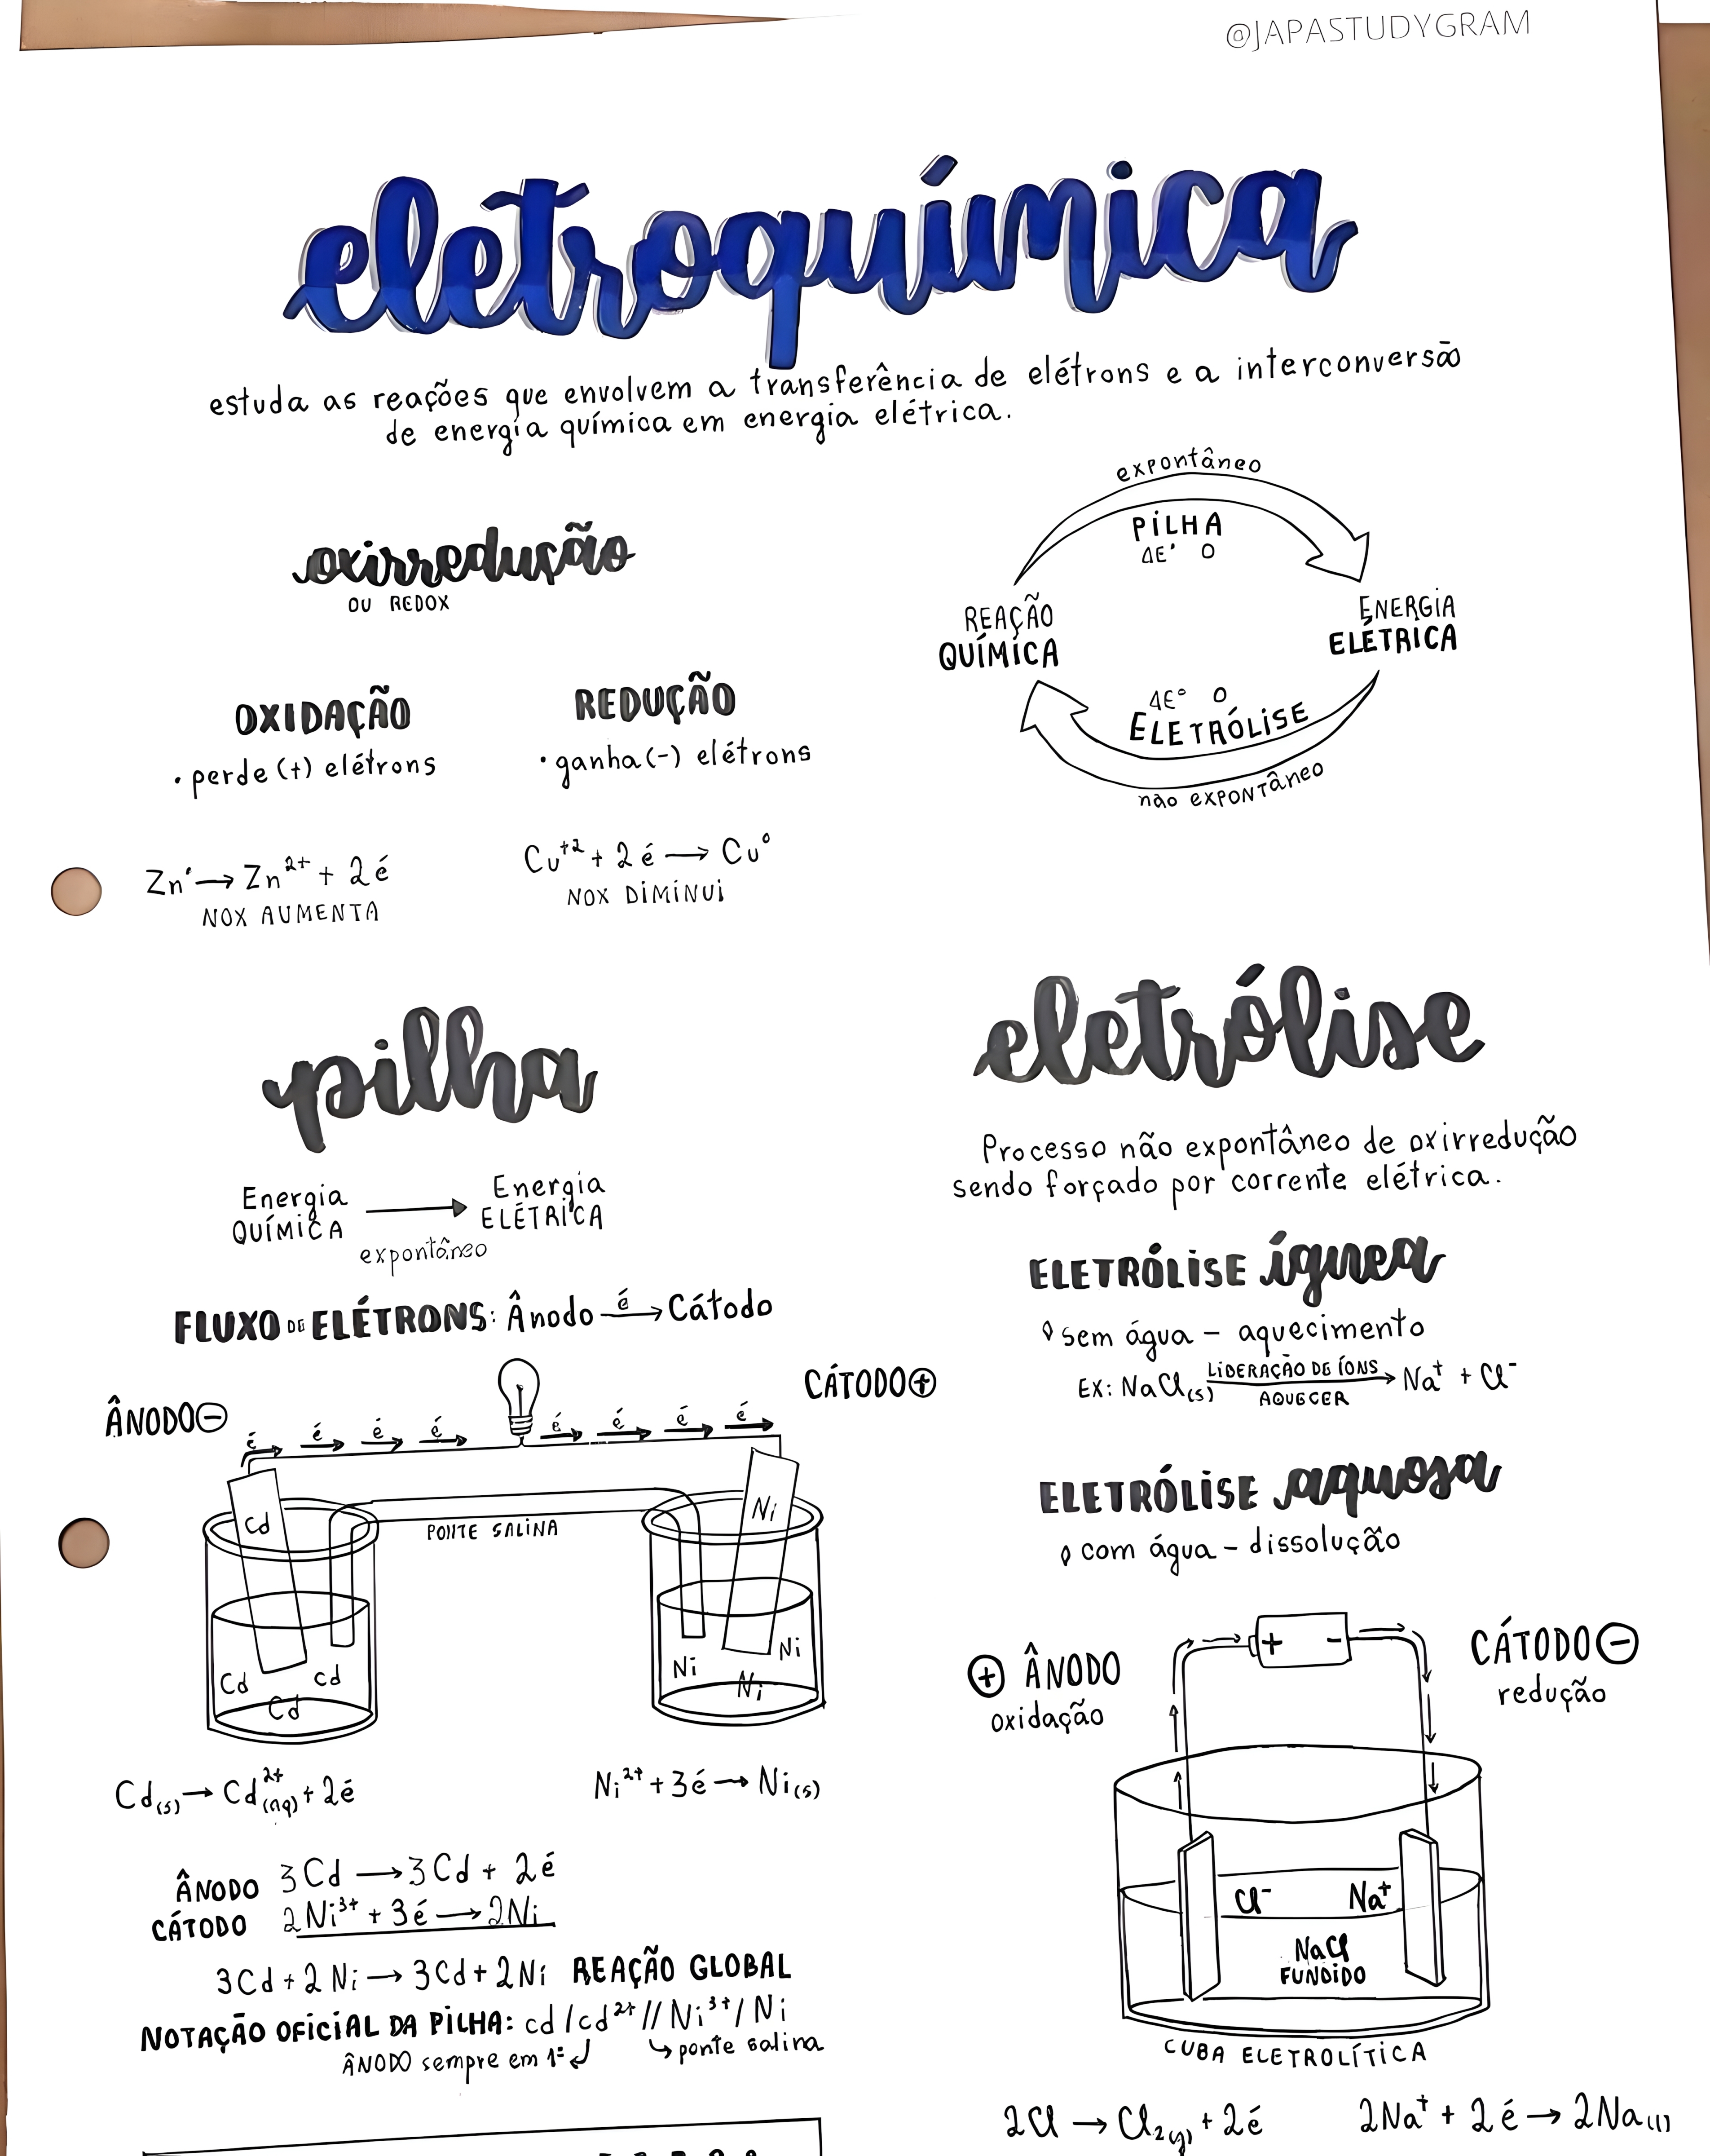 @JAPASTUDYGRAM
eletroquímica
estuda as reações que envolvem a transferência de elétrons e a interconversão
de energia química em energia elétrica.
oxirredução
OU REDOX
OXIDAÇÃO
• perde (+) elétrons
Zn° → Zn²⁺ + 2é
NOX AUMENTA
REDUÇÃO
• ganha (-) elétrons
Cu⁺² + 2é → Cu°
NOX DIMINUI
expontâneo
PILHA
ΔE° 0
REAÇÃO
QUÍMICA
ENERGIA
ELÉTRICA
ΔE° 0
ELETRÓLISE
não EXPONTÂNEO
pilha
Energia
QUÍMICA
→
Energia
ELÉTRICA
expontâneo
FLUXO DE ELÉTRONS: Ânodo é→ Cátodo
ÂNODO ⊖
CÁTODO ⊕
é é é é é é é é
Cd
Ni
PONTE SALINA
Cd cd
Cd
Ni Ni
Ni
Cd(s) → Cd²⁺(aq) + 2é
Ni²⁺ + 3é → Ni(s)
ÂNODO 3Cd → 3Cd + 2é
CÁTODO 2Ni³⁺ + 3é → 2Ni
3Cd + 2Ni → 3Cd + 2Ni REAÇÃO GLOBAL
NOTAÇÃO OFICIAL DA PILHA: cd/cd²⁺//Ni³⁺/Ni
ÂNODO sempre em 1º
↳ ponte salina
eletrólise
Processo não expontâneo de oxirredução
sendo forçado por corrente elétrica.
ELETRÓLISE ígnea
◊ sem água - aquecimento
LIDERAÇÃO DE ÍONS
EX: NaCl(s) → Na⁺ + Cl⁻
AQUECER
ELETRÓLISE aquosa
◊ com água - dissolução
⊕ ÂNODO
oxidação
+ -
CÁTODO ⊖
redução
Cl⁻ Na⁺
NaCl
FUNDIDO
CUBA ELETROLÍTICA
2Cl → Cl₂(g) + 2é
2Na⁺ + 2é → 2Na(l)